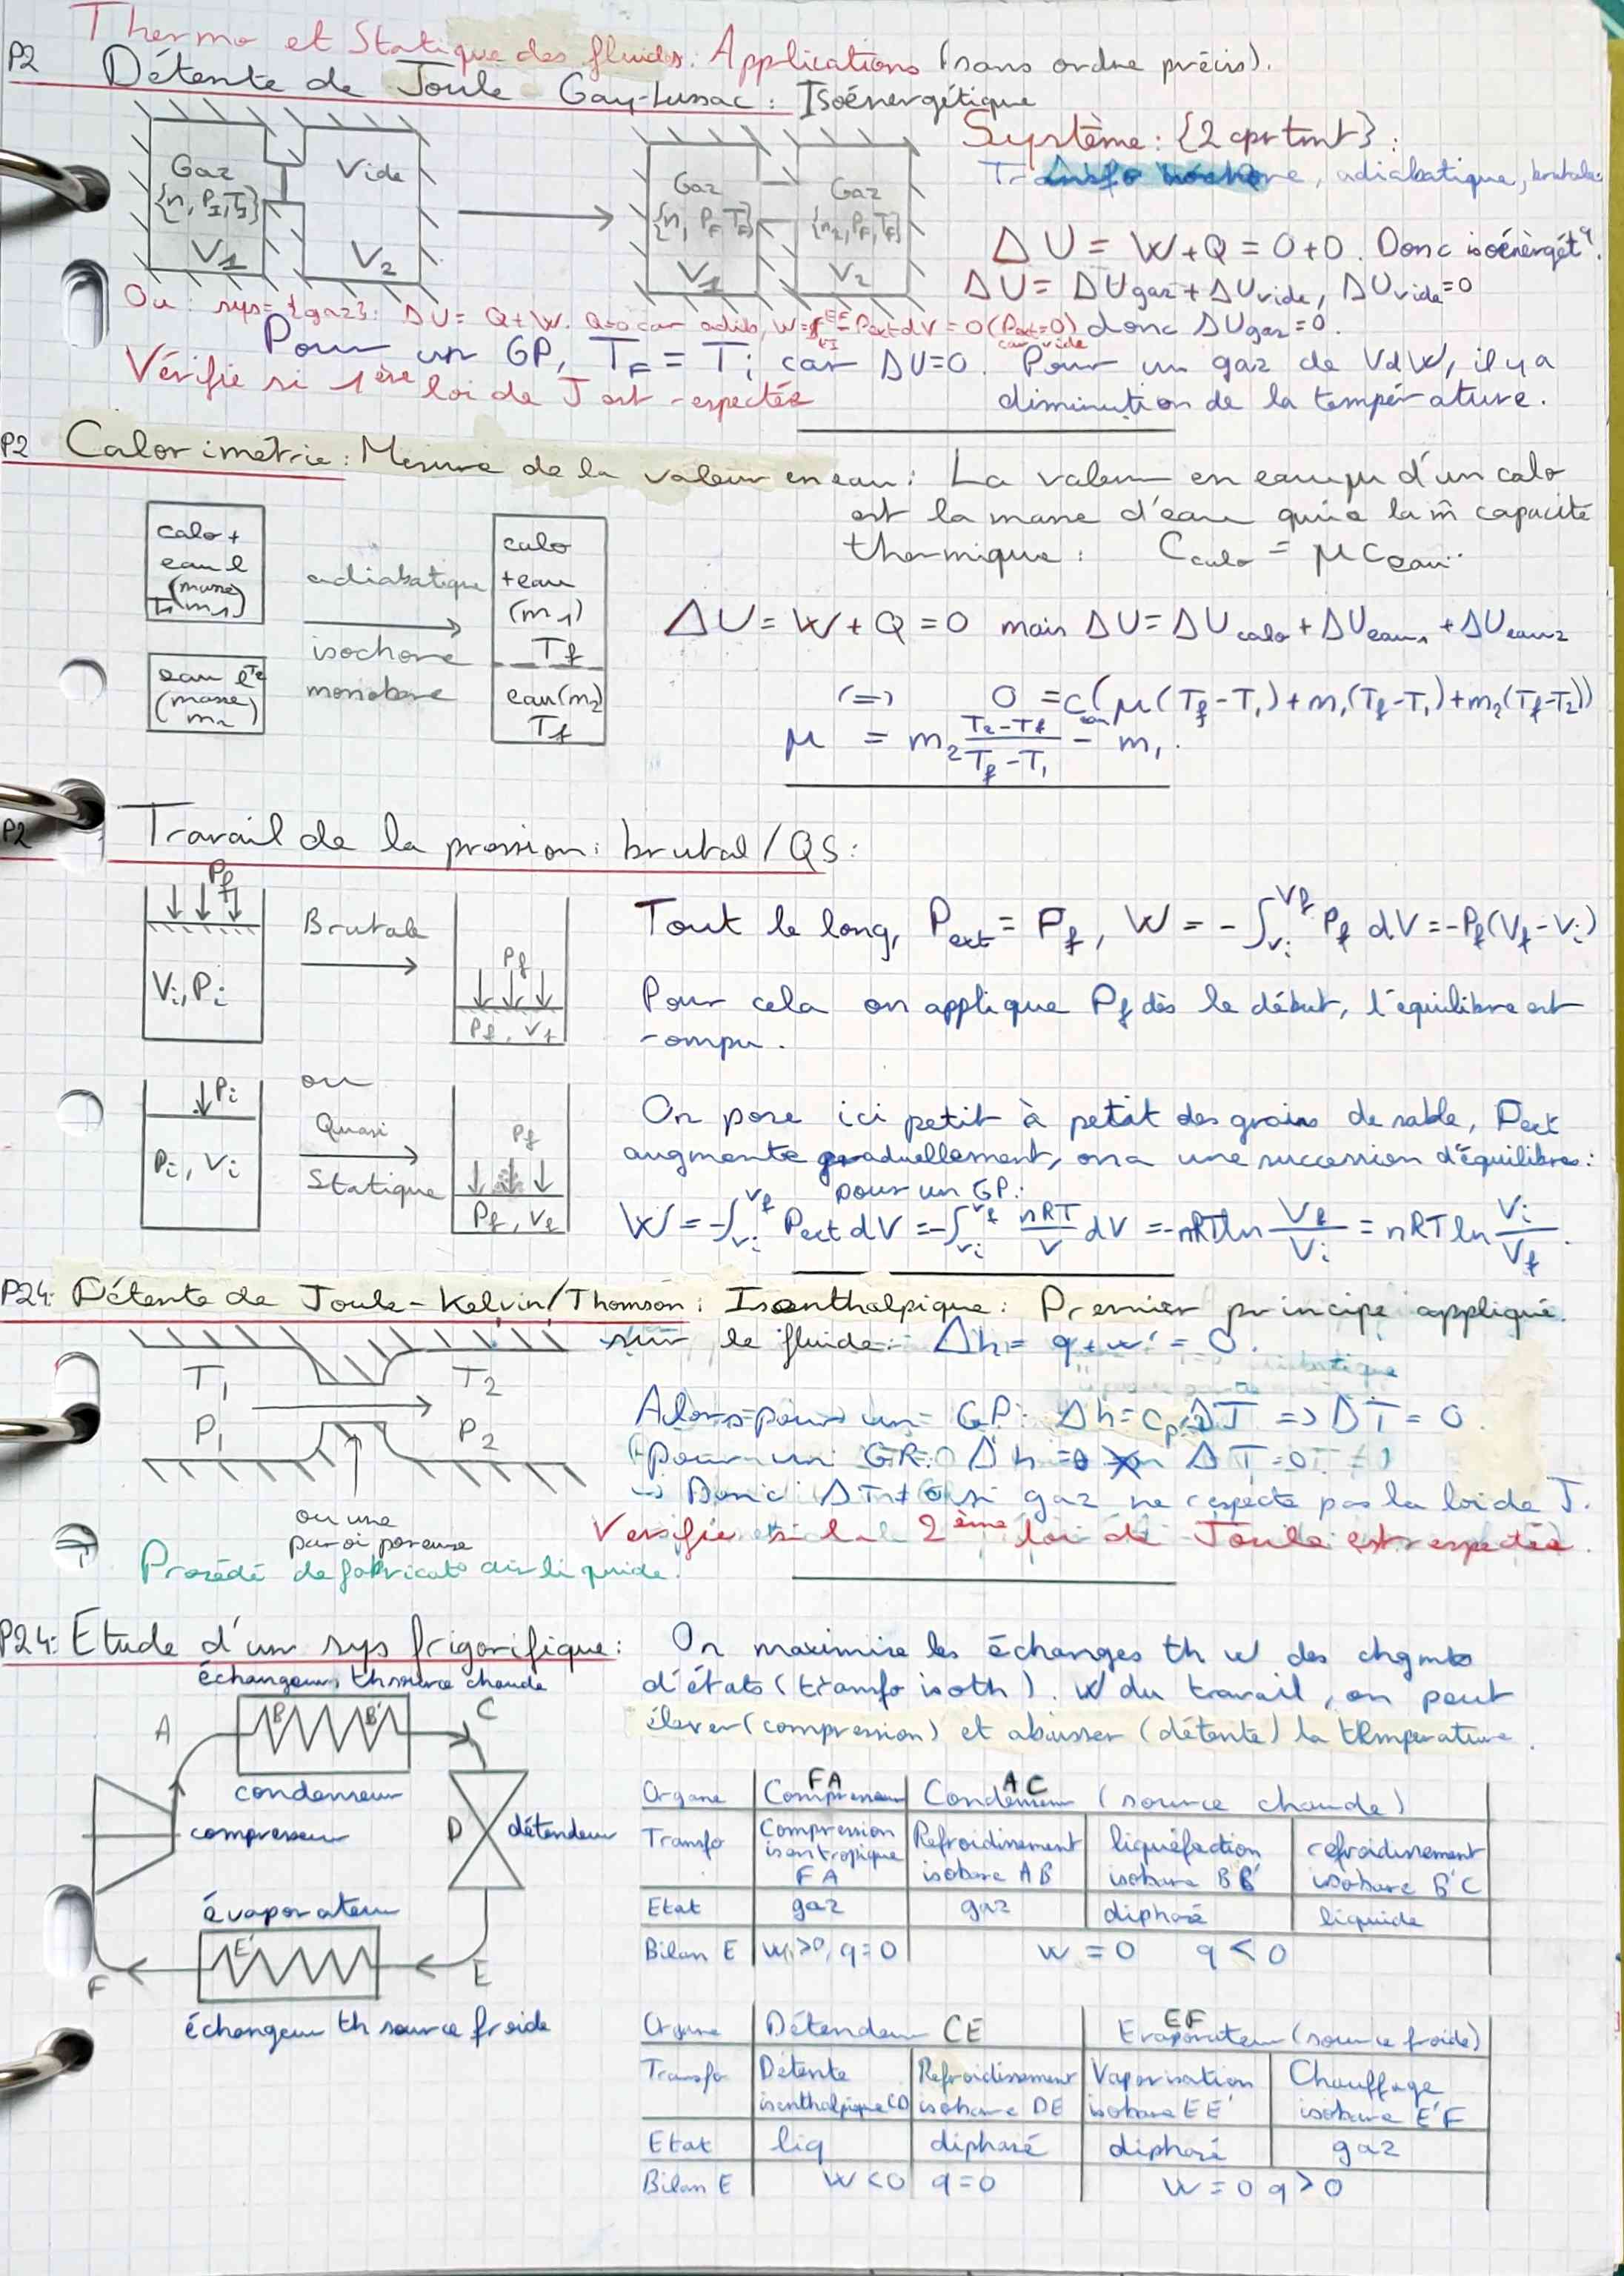 Thermo et Statique des fluides: Applications (sans ordre précis).
P2 Détente de Joule Gay-Lussac: Isoénergétique
Gaz {n, PI, TI} V1
Vide V2
Gaz {n, PF TF} V1
Gaz {n2, PF, TF} V2
Système: {2 cprtmt}:
Transfo isochore, adiabatique, brutale
ΔU = W+Q = 0+0. Donc isoénergétq.
ΔU = ΔUgaz + ΔUvide, ΔUvide=0
Ou: sys={gaz}: ΔU= Q+W. Q=0 car adiab, W=∫EI EF -Pext dV = 0 (Pext=0) car vide donc ΔUgaz=0.
Pour un GP, TF = Ti car ΔU=0. Pour un gaz de VdW, il y a
diminution de la température.
Vérifie si 1ère loi de J est respectée
P2 Calorimétrie: Mesure de la valeur en eau: La valeur en eau μ d'un calo
est la masse d'eau qui a la m̂ capacité
thermique: Ccalo = μ ceau.
calo + eau l (masse m1) T1
eau l T2 (masse m2)
adiabatique
isochore
monobare
calo +eau (m1) Tf
eau (m2) Tf
ΔU = W + Q = 0 mais ΔU = ΔUcalo + ΔUeau1 + ΔUeau2
(=) 0 = ceau(μ(Tf-T1)+m1(Tf-T1)+m2(Tf-T2))
μ = m2 (T2-Tf)/(Tf-T1) - m1.
P2 Travail de la pression: brutal/QS:
Pf
Vi, Pi
Brutale
Pf
Pf, Vf
Tout le long, Pext = Pf, W = -∫Vi Vf Pf dV = -Pf(Vf-Vi)
Pour cela on applique Pf dès le début, l'équilibre est
rompu.
Pi
Pi, Vi
ou
Quasi
Statique
Pf
Pf, Vf
On pose ici petit à petit des grains de sable, Pext
augmente graduellement, on a une succession d'équilibres:
pour un GP:
W = -∫Vi Vf Pext dV = -∫Vi Vf nRT/V dV = -nRT ln Vf/Vi = nRT ln Vi/Vf.
P24: Détente de Joule-Kelvin/Thomson: Isenthalpique: Premier principe appliqué
sur le fluide: Δh = q + w' = 0.
T1 T2
P1 P2
ou une
paroi poreuse
Alors pour un GP: Δh= cp ΔT => ΔT = 0.
pour un GR: Δh =0
Donc ΔT≠0 si gaz ne respecte pas la loi de J.
Vérifie si la 2ème loi de Joule est respectée.
Procédé de fabricato air liquide.
P24: Etude d'un sys frigorifique: On maximise les échanges th w des chgmts
d'états (transfo isoth). W du travail, on peut
élever (compression) et abaisser (détente) la température.
échangeur th source chaude
A B B' C
condenseur
compresseur
D détendeur
évaporateur
E'
F E
échangeur th source froide
Organe Compresseur FA Condenseur AC (source chaude)
Transfo Compression isentropique FA Refroidissement isobare AB liquéfaction isobare BB' refroidissement isobare B'C
Etat gaz gaz diphasé liquide
Bilan E wi>0, q=0 w = 0 q < 0
Organe Détendeur CE Evaporateur EF (source froide)
Transfo Détente isenthalpique CD Refroidissement isobare DE Vaporisation isobare EE' Chauffage isobare E'F
Etat liq diphasé diphasé gaz
Bilan E W<0 q=0 W=0 q>0